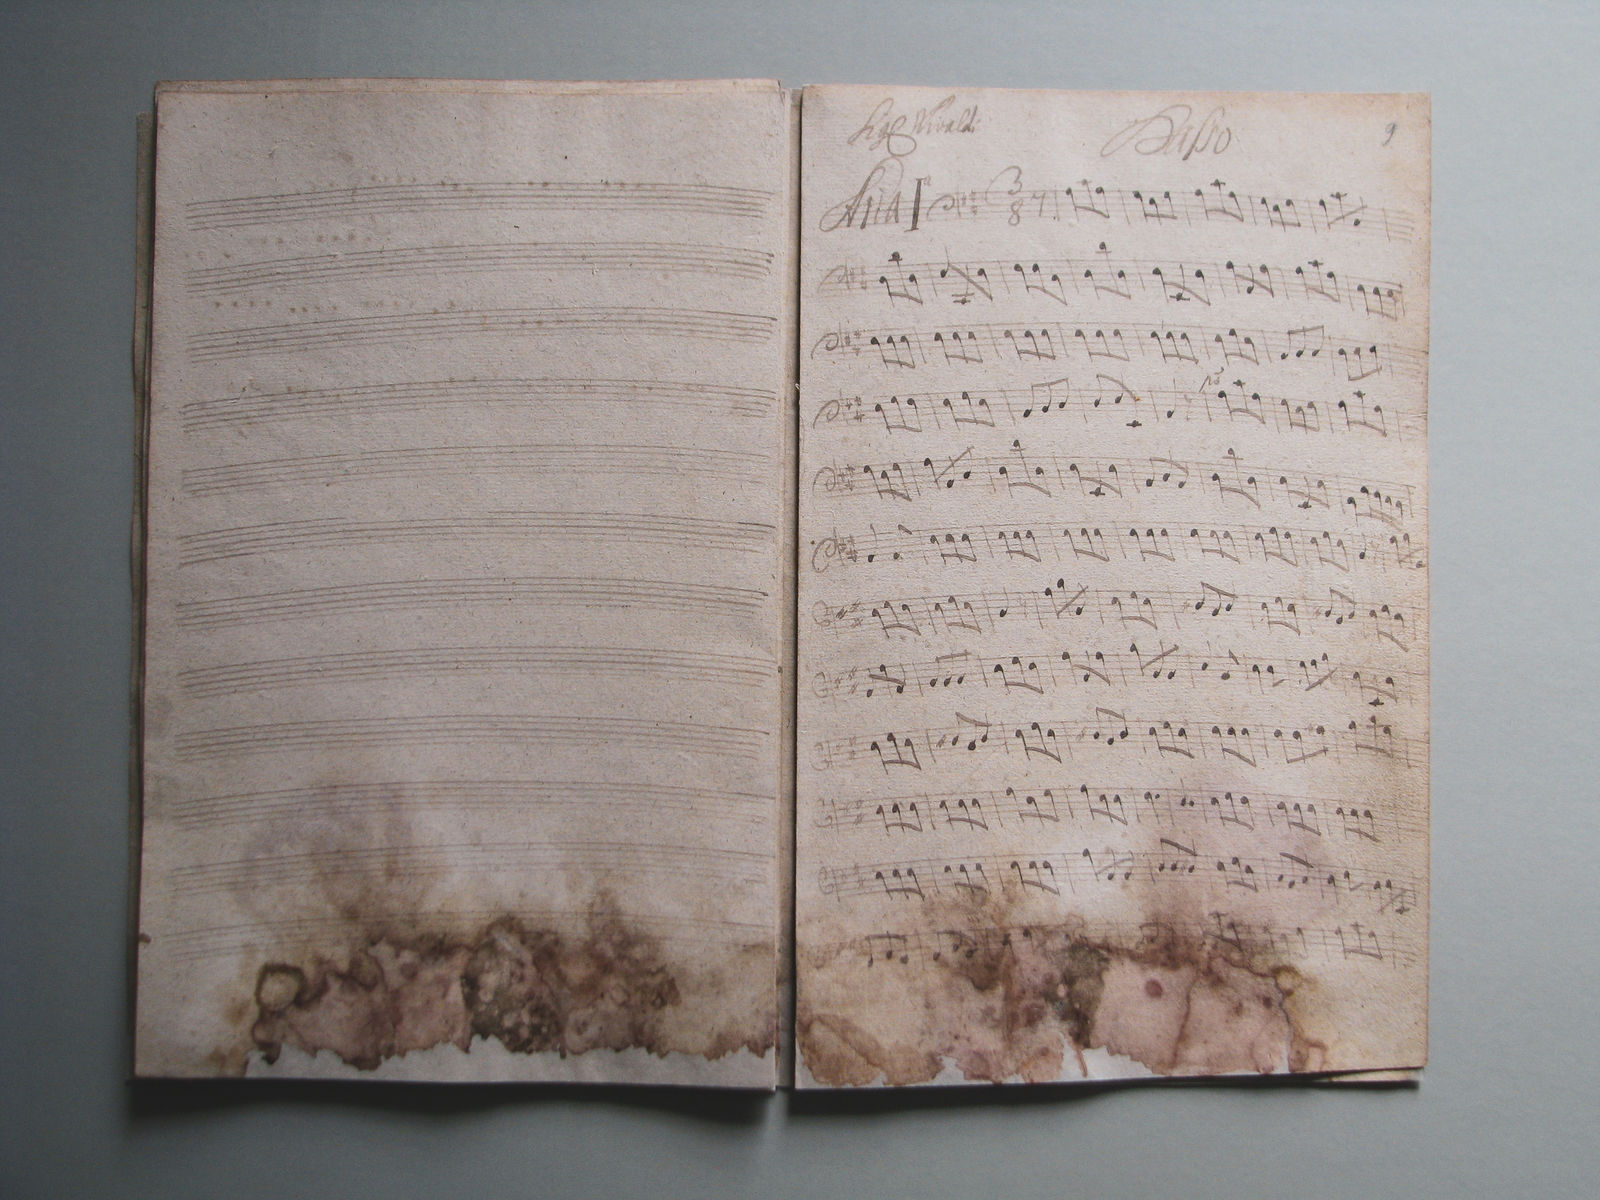 Sigr Vivaldi Basso 9
Aria Ia 3 8